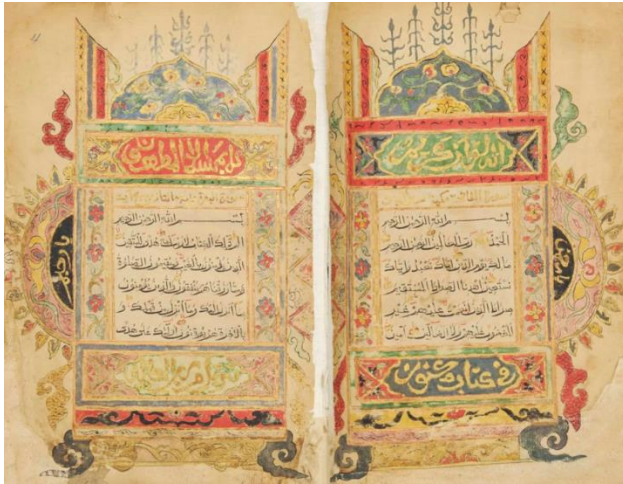 انه لقرآن كريم
بسم الله الرحمن الرحيم
الحمد لله رب العالمين الرحمن الرحيم
مالك يوم الدين اياك نعبد واياك
نستعين اهدنا الصراط المستقيم
صراط الذين انعمت عليهم غير
المغضوب عليهم ولا الضالين آمين
في كتاب مكنون
يا رحمن
لا يمسه الا المطهرون
بسم الله الرحمن الرحيم
الم ذلك الكتاب لا ريب فيه هدى للمتقين
الذين يؤمنون بالغيب ويقيمون الصلوة
ومما رزقناهم ينفقون والذين يؤمنون
بما انزل اليك وما انزل من قبلك و
بالآخرة هم يوقنون اولئك على هدى
يا رحيم